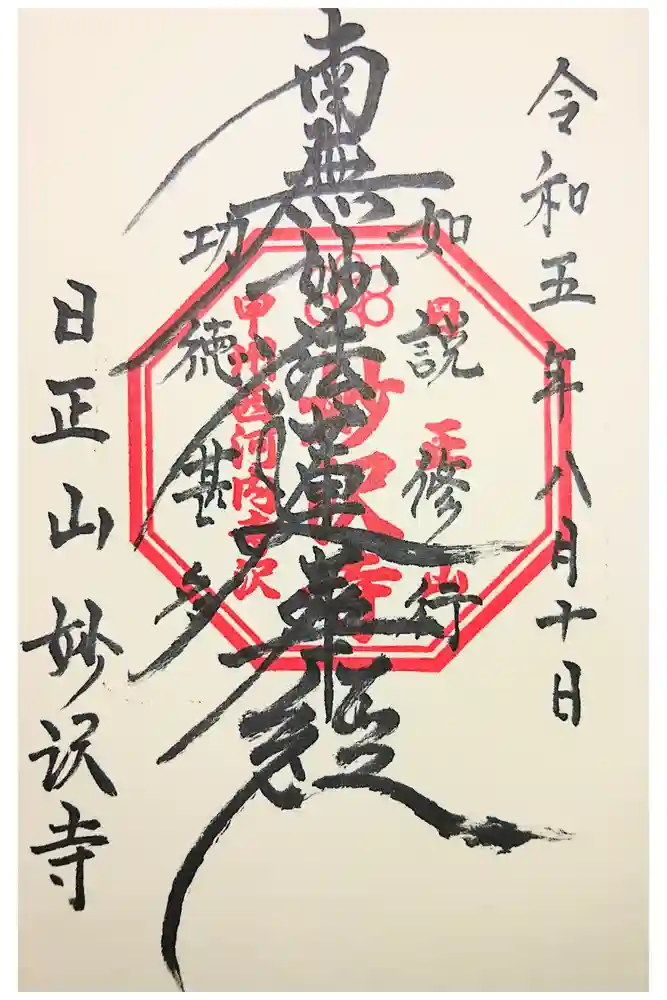 令和五年八月十日
如説修行
南無妙法蓮華経
功徳甚多
日正山妙沢寺
日正山
妙沢寺
甲州西河内